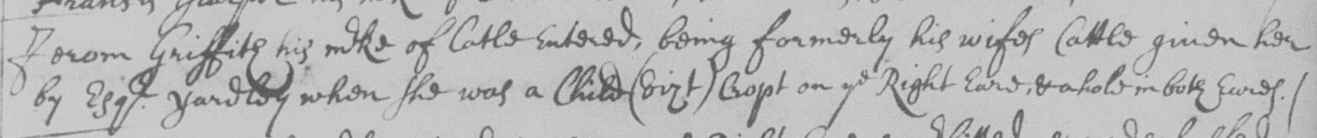 Jerom Griffith his mrke of Catle Entered, being formerly his wifes Cattle given her
by Esqr. Yardley when she was a Child (vizt) Cropt on ye Right Eare, & a hole in both Eares. /